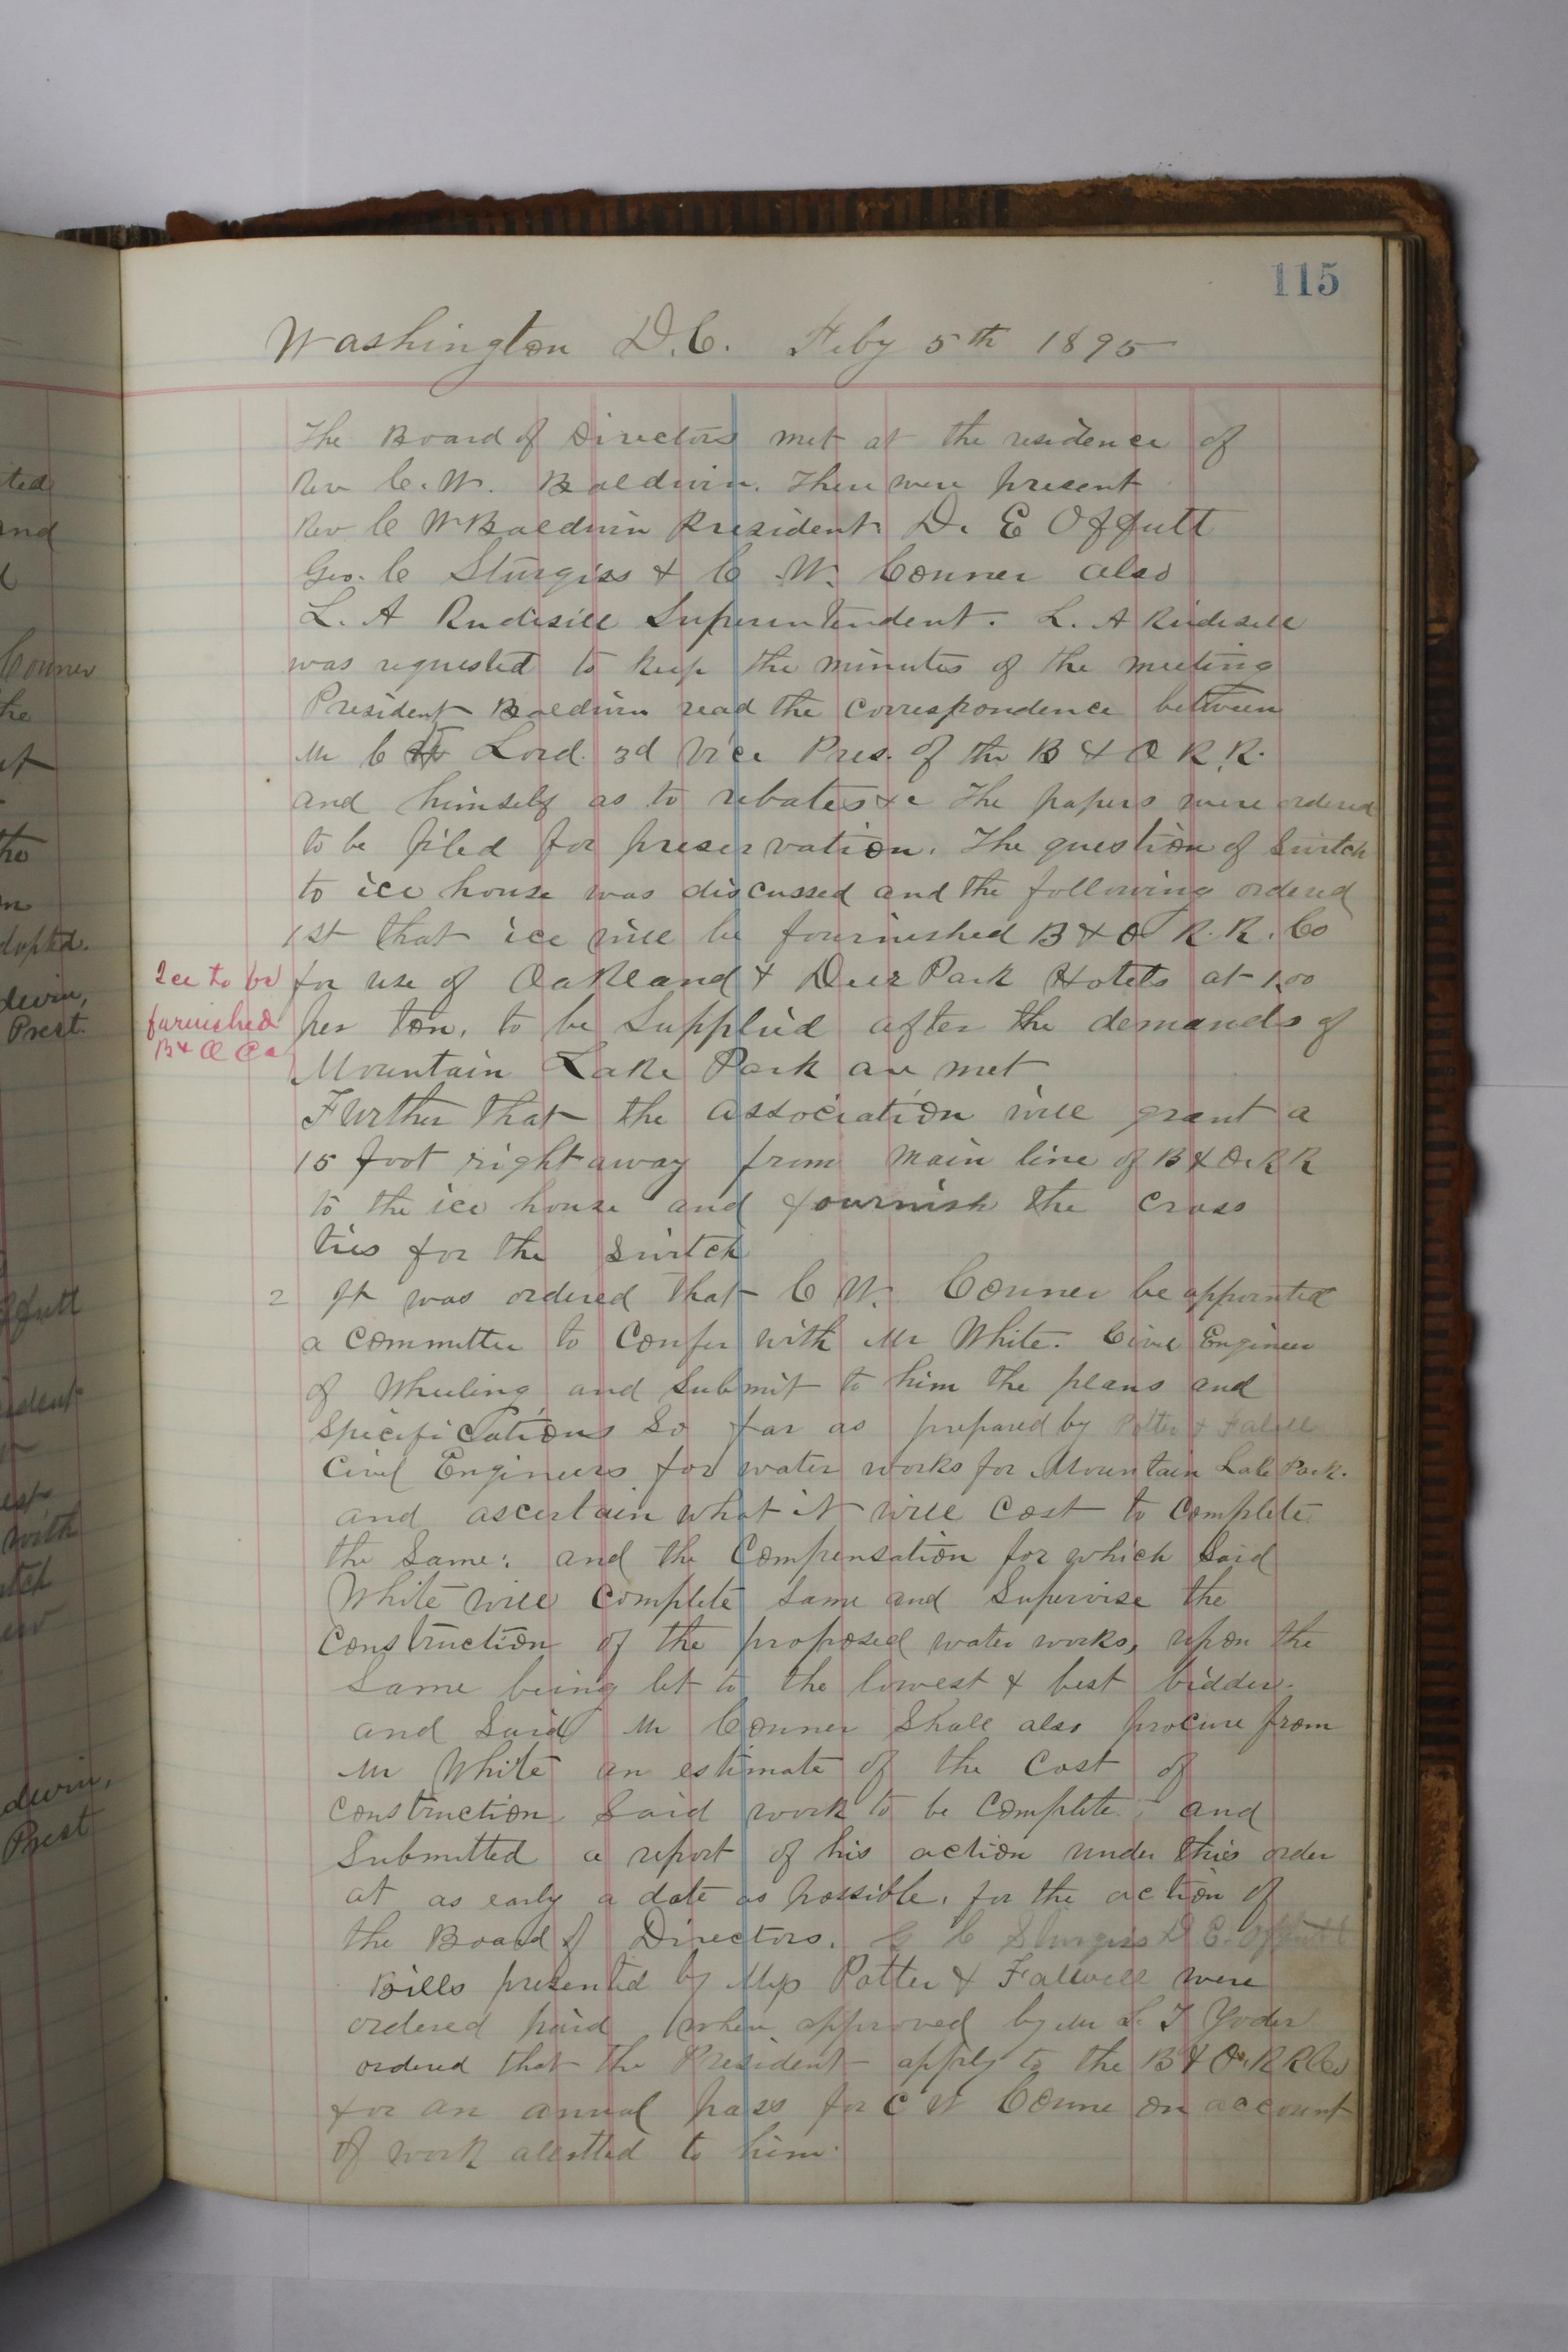 115
Washington D.C. Feby 5th 1895
The Board of Directors met at the residence of
Rev C. W. Baldwin. There were present
Rev C W Baldwin President D. E Offutt
Geo. C Sturgiss & C. W. Conner also
L. A Rudisill Superintendent. L. A Rudisill
was requested to keep the minutes of the meeting
President Baldwin read the correspondence between
Mr C Lord. 3d Vice Pres. of the B & O R. R.
and himself as to rebates &c The papers were ordered
to be filed for preservation. The question of Switch
to ice house was discussed and the following ordered
1st that ice will be fournished B & O R. R. Co
Ice to be
furnished
B & O Co
for use of Oakland & Deer Park Hotels at 1.00
per ton, to be Supplied after the demands of
Mountain Lake Park are met
Further that the association will grant a
15 foot right away from main line of B & O. R R
to the ice house and fournish the cross
ties for the Switch
2 It was ordered that C W. Conner be appointed
a Committee to Confer with Mr White. Civil Engineer
of Wheeling and Submit to him the plans and
Specifications So far as prepared by Potter &
Civil Engineers for water works for Mountain Lake Park.
and ascertain what it will Cost to Complete
the Same; and the Compensation for which Said
White will Complete Same and Supervise the
Construction of the proposed water works, upon the
Same being let to the lowest & best bidder.
and Said Mr Conner Shall also procure from
Mr White an estimate of the Cost of
construction Said work to be Complete and
Submitted a report of his action under this order
at as early a date as possible, for the action of
the Board of Directors. G C Sturgiss D E. Offutt
Bills presented by Potter & Falwell were
ordered paid when approved by Mr L. T Yoder
ordered that the President apply to the B & O. R R Co
for an annual pass for C W Conne on account
of work alotted to him.